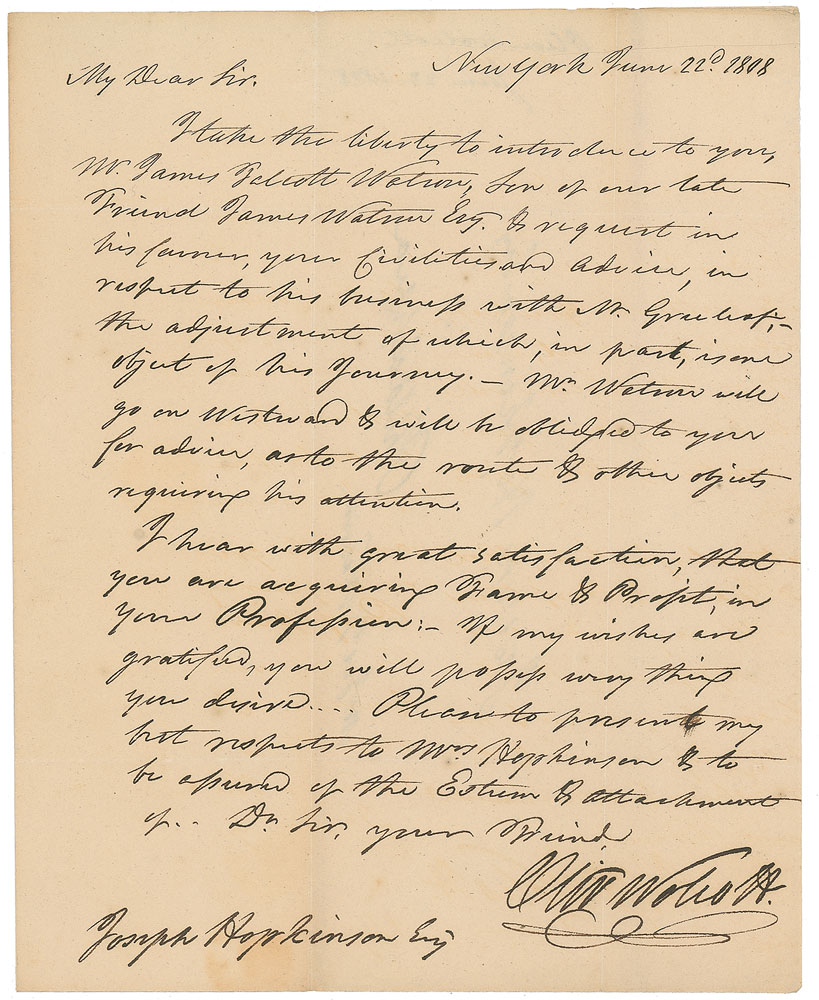 New York June 22d. 1808
My Dear Sir.
I take the liberty to introduce to you,
Mr. James Talcott Watson, Son of our late
Friend James Watson Esq. & request in
his favour, your Civilities and advice, in
respect to his business with Mr. Greenleaf;—
the adjustment of which, in part, is one
object of his Journey. — Mr. Watson will
go on Westward & will be obliged to you
for advice, as to the route & other objects
requiring his attention.
I hear with great satisfaction, that
you are acquiring Fame & Profit, in
your Profession:— If my wishes are
gratified, you will possess every thing
you desire.... Please to present my
best respects to Mrs Hopkinson & to
be assured of the Esteem & attachment
of.. Dr. Sir, your Friend,
Oliv Wolcott.
Joseph Hopkinson Esq